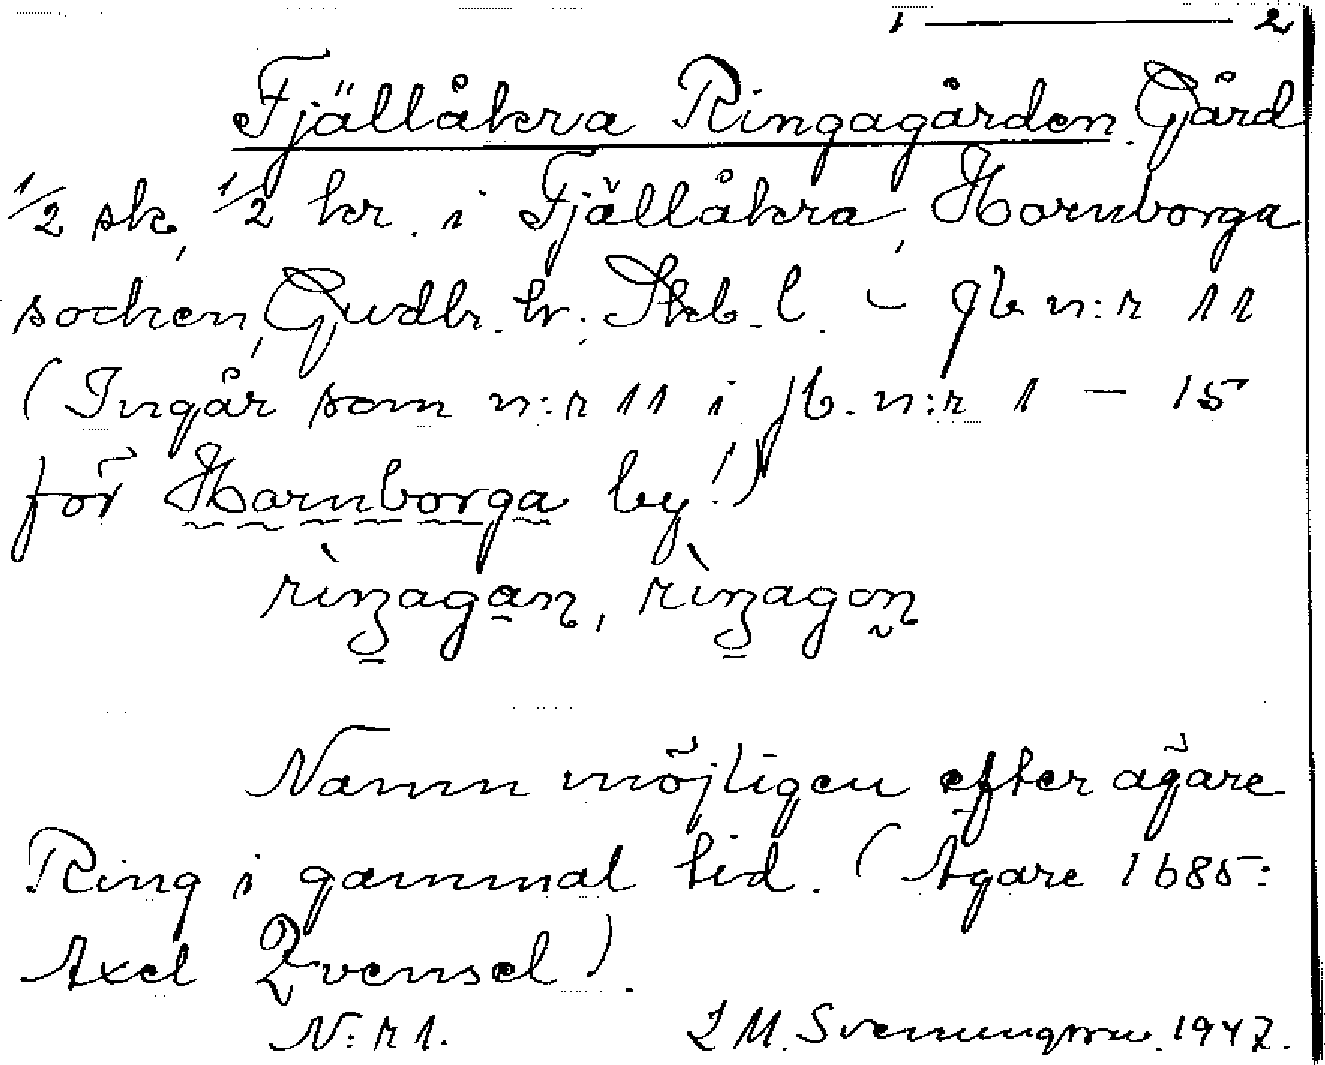 1 — 2
Fjällåkra Ringagården. Gård
1/2 sk, 1/2 kr. i Fjällåkra, Hornborga
socken, Gudh. hr. Skb. l. – jb n:r 11
(Ingår som n:r 11 i jb. n:r 1 – 15
för Hornborga by!)
Namn möjligen efter ägare
Ring i gammal tid. (Ägare 1685:
Axel Qvensel).
N:r 1. L M. Svenungsson. 1947.